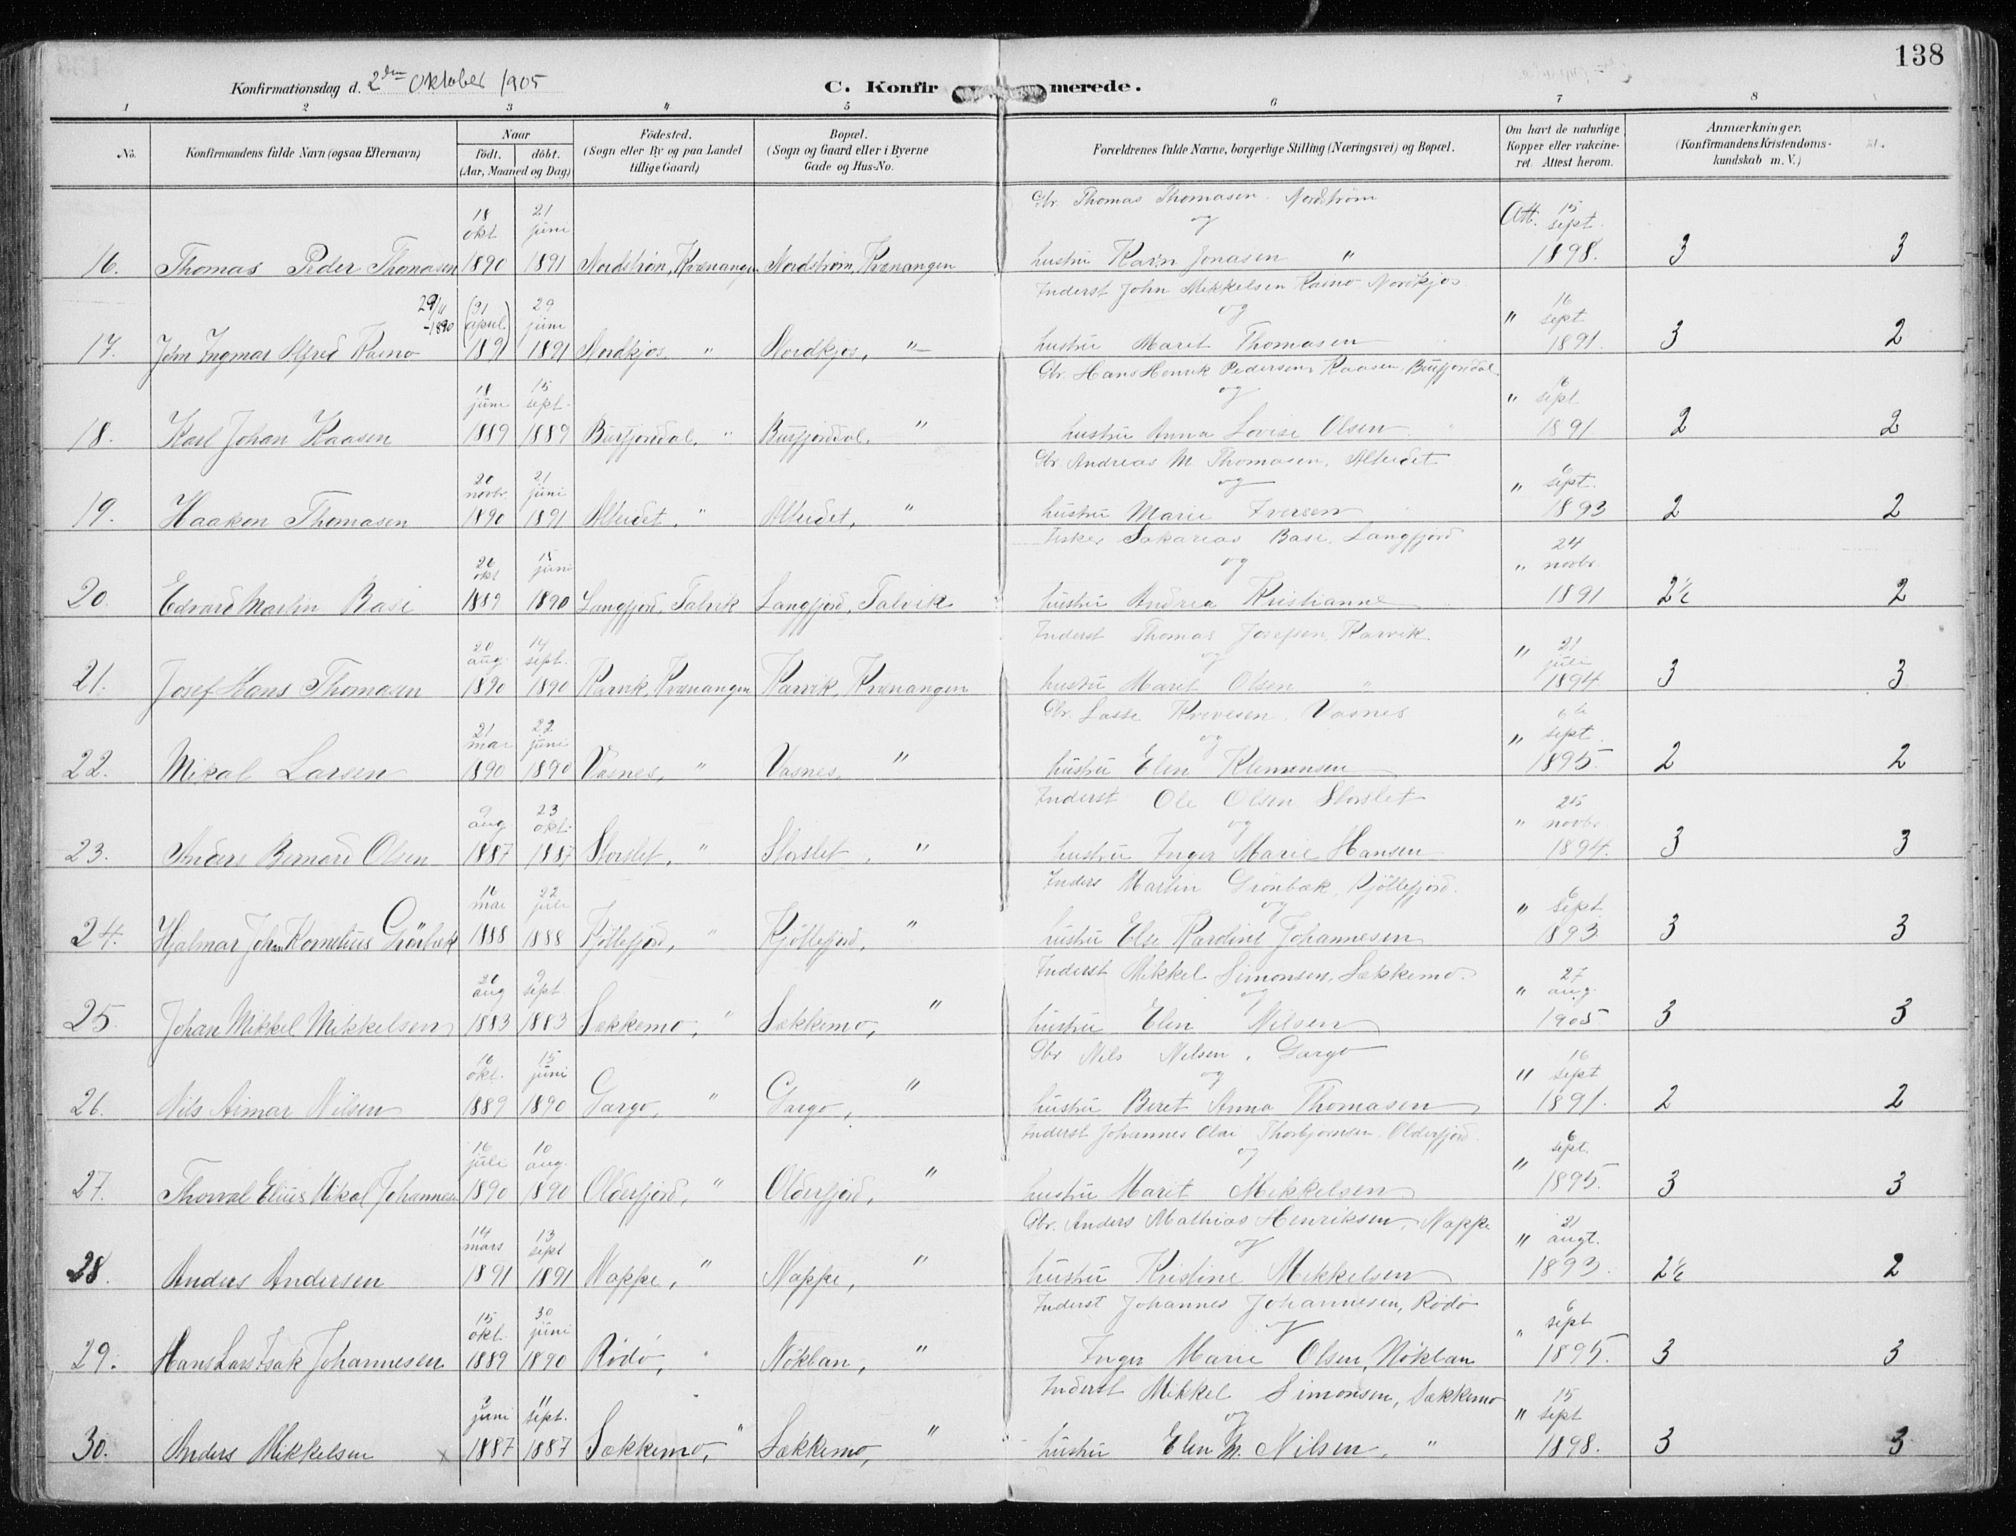 138
Konfirmationsdag d. 2den Oktober 1905 C. Konfirmerede.
1 2 3 4 5 6 7 8
No. Konfirmandens fulde Navn (ogsaa Efternavn) Naar födt. döbt. (Aar, Maaned og Dag) Födested. (Sogn eller By og paa Landet tillige Gaard) Bopæl. (Sogn og Gaard eller i Byerne Gade og Hus-No. Forældrenes fulde Navne, borgerlige Stilling (Næringsvei) og Bopæl. Om havt de naturlige Kopper eller vakcineret. Attest herom. Anmærkninger. (Konfirmandens Kristendomskundskab m. V.)
18 okt 21 juni Gbr. Thomas Thomasen. Nordstrøm og Att. 15 sept.
16. Thomas Peder Thomasen 1890 1891 Nordstrøm, Kvænangen Nordstrøm, Kvænangen hustru Karn Jonasen " 1898. 3 3
29/11 -1890 (31 april 29 juni Inderst John Mikkelsen Rasmo Nordkjos og " 16 sept
17. John Ingmar Alfred Rasmo 1891 1891 Nordkjos " Nordkjos, "– hustru Maret Thomasen 1891. 3 2
11 juni 15 sept. Gbr. Hans Henrik Pedersen Kaasen, Burfjorddal og " 16 sept
18. Karl Johan Kaasen 1889 1889 Burfjorddal, " Burfjorddal, " hustru Anna Lovise Olsen 1891 2 2
20 novbr. 21 juni Gbr. Andreas M. Thomasen, Alteidet og " 6 sept.
19. Haakon Thomasen 1890 1891 Alteidet, " Alteidet, " hustru Marie Iversen 1893 2 2
26 okt 15 juni Fisker Sakarias Basi, Langfjord og " 24 novbr
20. Edvard Martin Basi 1889 1890 Langfjord, Talvik Langfjord, Talvik hustru Andrea Kristianne 1891 2½ 2
20 aug. 14 sept. Inderst Thomas Josefsen, Karvik. og " 21 juli
21. Josef Hans Thomasen 1890 1890 Karvik, Kvænangen Karvik, Kvænangen hustru Marit Olsen " 1894 3 3
21 mar 22 juni Gbr. Lasse Vasnes og " 6te sept.
22. Mikal Larsen 1890 1890 Vasnes, " Vasnes, " hustru Elen Klemensen 1895. 2 2
9 aug 23 okt. Inderst Ole Olsen Storslet og " 25 novbr
23. Anders Bernard Olsen 1887 1887 Storslet, " Storslet, " hustru Inger Marie Hansen 1894. 3 3
16 mai 22 juli Inders Martin Grönbæk, Kjöllefjord. og " 6 sept.
24. Hjalmar John Kornelius Grönbæk 1888 1888 Kjöllefjord, " Kjöllefjord, " hustru Else Karoline Johannesen 1893. 3 3
20 aug 9 sept. Inderst Mikkel Simonsen, Sækkemo. og " 27 aug.
25. Johan Mikkel Mikkelsen 1883 1883 Sækkemo, " Sækkemo, " hustru Elen Nilsen 1905 3 3
16 okt. 15 juni Gbr Nils Nilsen, Gargo og " 16 sept
26. Nils Aimar Nilsen 1889 1890 Gargo, " Gargo, " hustru Beret Anna Thomasen 1891. 2 2
16 juli 10 aug. Inderst Johannes Olai Thorbjørnsen, Olderfjord. og " 6 sept.
27. Thorval Elius Mikal Johannesen 1890 1890 Olderfjord, " Olderfjord, " hustru Marit Mikkelsen 1895. 3 3
14 mars 13 sept Gbr. Anders Mathias Henriksen, Nappe og " 21 augt.
28. Anders Andersen 1891 1891 Nappe, " Nappe, " hustru Kristine Mikkelsen 1893. 2½ 2
15 okt. 30 juni Inderst Johannes Johannesen, Rødø og " 6 sept
29. Hans Lars Isak Johannesen 1889 1890 Rødø, " Nøklan, " Inger Marie Olsen, Nøklan 1895. 3 3
9 juni 11 sept. Inderst Mikkel Simonsen, Sækkemo og " 15 sept
30. Anders Mikkelsen x 1887 1887 Sækkemo, " Sækkemo, " hustru Elen M. Nilsen, " 1898. 3 3